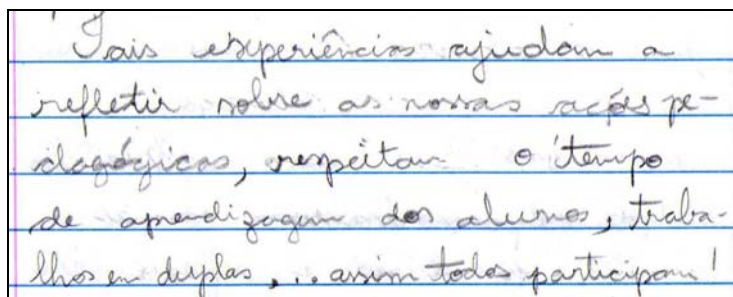 Tais experiências ajudam a
refletir sobre as nossas ações pe-
dagógicas, respeitam o tempo
de aprendizagem dos alunos, traba-
lhos em duplas, ... assim todos participam!